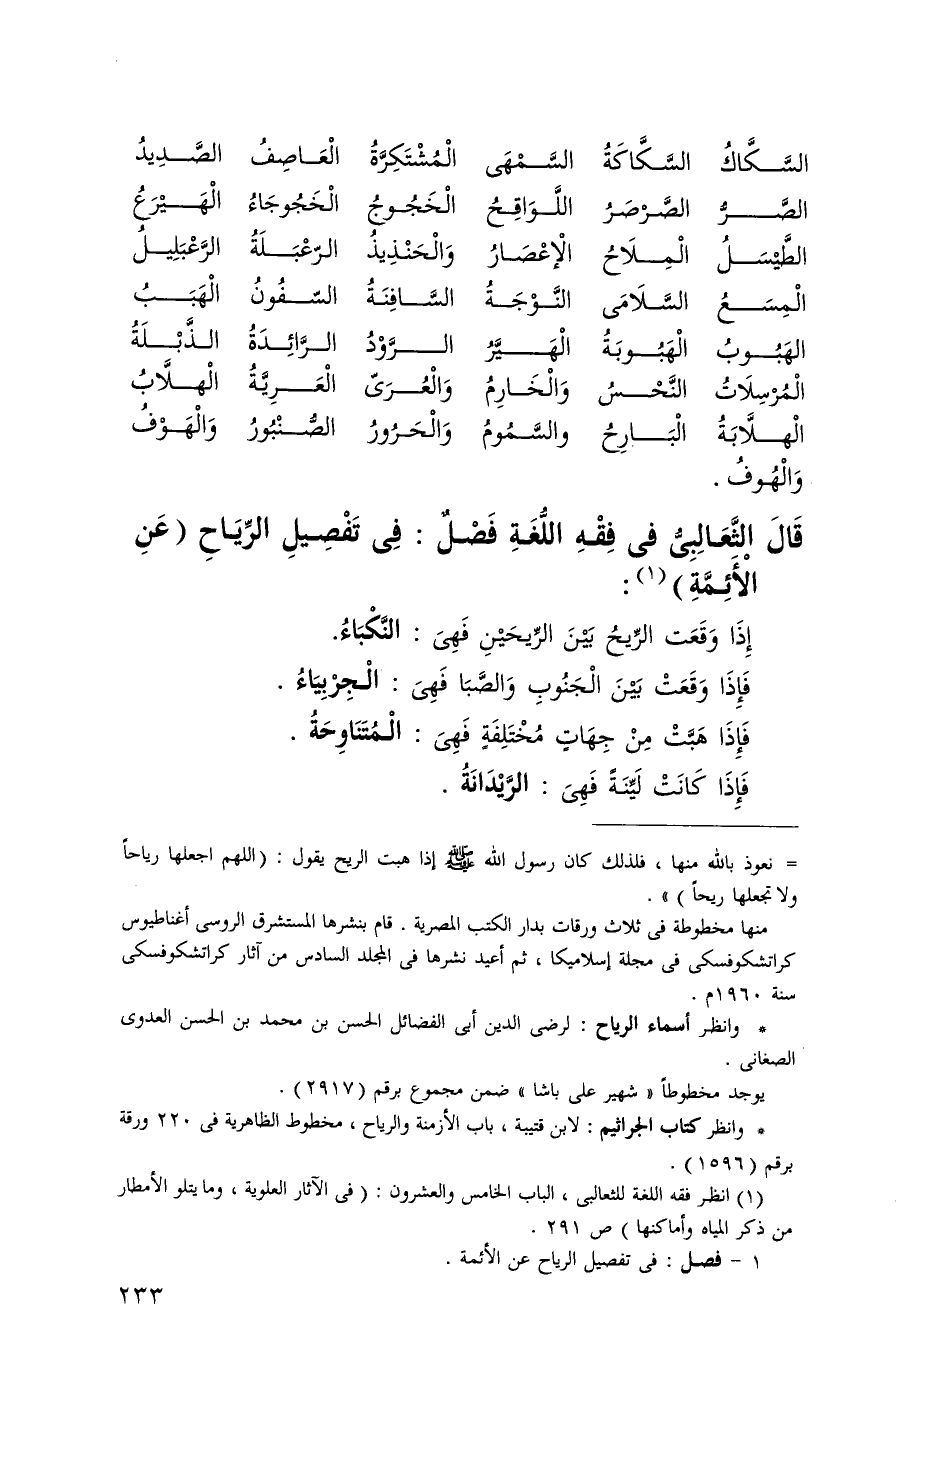 السَّكَّاكُ السَّكَّاكَةُ السَّمْهَى الْمُشْتَكِرَّةُ الْعَاصِفُ الصَّدِيدُ
الصَّرُّ الصَّرْصَرُ اللَّوَاقِحُ الْخَجُوجُ الْخَجُوجَاءُ الْهَيْرَعُ
الطَّيْسَلُ الْمِلَاحُ الْإِعْصَارُ وَالْحَنْذِيذُ الرَّعْبَلَةُ الرَّعْبَلِيلُ
الْمِسَعُ السَّلَامَى النَّوْجَةُ السَّافِنَةُ السَّفُونُ الْهَبَبُ
الهَبُوبُ الْهَبُوبَةُ الْهَيْرُ الرَّوْدُ الرَّائِدَةُ الذَّبْلَةُ
الْمُرْسِلَاتُ النَّحْسُ وَالْخَارِمُ وَالْعُرَىّ الْعَرِيَّةُ الْهلَّابُ
الْهلَّابَةُ الْبَارِحُ والسَّمُومُ وَالْحَرُورُ الصُّنْبُورُ وَالْهَوْفُ
وَالْهُوفُ .
قَالَ الثَّعَالِبِىُّ فى فِقْهِ اللُّغَةِ فَصْلٌ : فِى تَفْصِيلِ الرِّيَاحِ (عَنِ
الْأَئِمَّةِ)(١) :
إِذَا وَقَعَت الرِّيحُ بَيْنَ الرِّيحَيْنِ فَهِىَ : النَّكْبَاءُ.
فَإِذَا وَقَعَتْ بَيْنَ الْجَنُوبِ وَالصَّبَا فَهِىَ : الْجِرْبِيَاءُ .
فَإِذَا هَبَّتْ مِنْ جِهَاتٍ مُخْتَلِفَةٍ فَهِىَ : الْمُتَنَاوِحَةُ .
فَإِذَا كَانَتْ لَيِّنَةً فَهِىَ : الرَّيْدَانَةُ .
= نعوذ بالله منها ، فلذلك كان رسول الله ﷺ إذا هبت الريح يقول : (اللهم اجعلها رياحاً
ولا تجعلها ريحاً ) » .
منها مخطوطة فى ثلاث ورقات بدار الكتب المصرية . قام بنشرها المستشرق الروسى أغناطيوس
كراتشكوفسكى فى مجلة إسلاميكا ، ثم أعيد نشرها فى المجلد السادس من آثار كراتشكوفسكى
سنة ١٩٦٠م .
* وانظر أسماء الرياح : لرضى الدين أبى الفضائل الحسن بن محمد بن الحسن العدوى
الصغانى .
يوجد مخطوطاً « شهير على باشا » ضمن مجموع برقم (٢٩١٧) .
* وانظر كتاب الجراثيم : لابن قتيبة ، باب الأزمنة والرياح ، مخطوط الظاهرية فى ٢٢٠ ورقة
برقم (١٥٩٦) .
(١) انظر فقه اللغة للثعالبى ، الباب الخامس والعشرون : ( فى الآثار العلوية ، وما يتلو الأمطار
من ذكر المياه وأماكنها ) ص ٢٩١ .
١ - فصل : فى تفصيل الرياح عن الأئمة .
٢٣٣